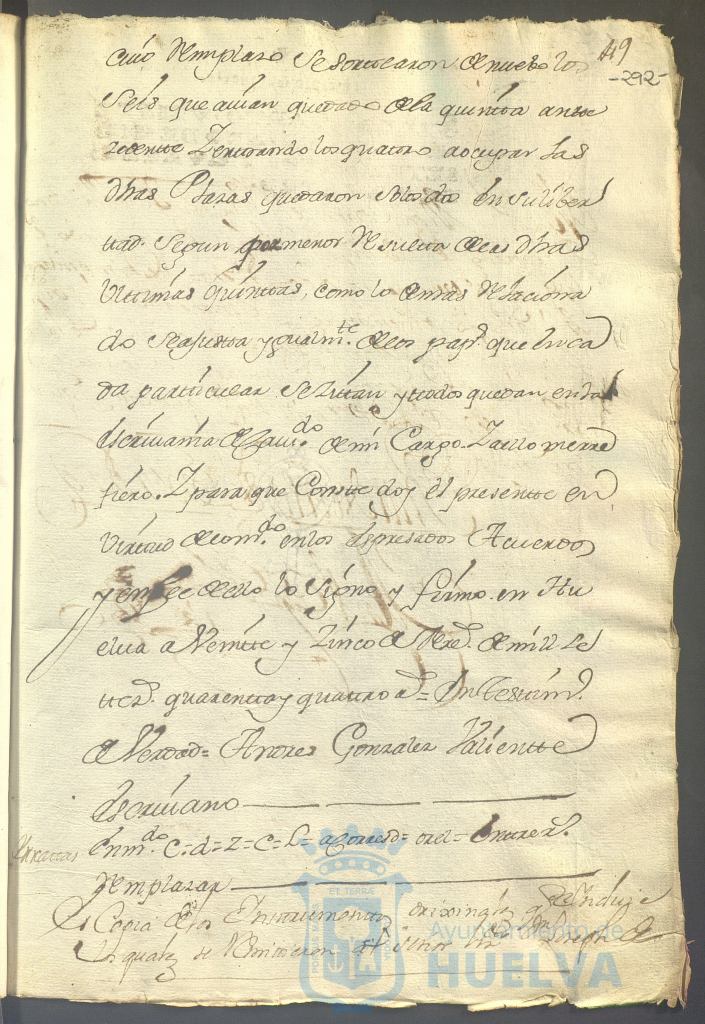 149
-292-
cuio Remplazo Se Sortearon de nuebo los
Seis que auian quedado de la quinta ante
zedente Zerteando los quatro a ocupar las
dhas Plazas quedaron solo dos en su liber
ttad. Segun por menor Resulta de las dhas
Ulttimas quinttas, como lo demas Relaciona
do Se ajusta y gualmte. de los pap.s que en ca
da partticular Se Zittan y ttodos quedan en la
Escriuania de Cau.do de mi Cargo Z a ello me rre
fiero. Z para que Conste doy el presente en
Virttud de lo m.do en los Expresados Acuerdos
y en fee de ello lo Signo y firmo en Hu
elua a Veintte y Zinco de del mill Se
ttez.s quarentta y quattro a.s = En Testtim.o
de Verdad = Andres Gonzalez Valientte
Escriuano
Erratas
Enm.do C=d=Z=C=L= a Corresd= = Entrer.s
Remplazar
Es Copia de los Instrumentos orixinales
los quales se Remitieron al Señor
ET TERRÆ
Ayuntamiento de
HUELVA